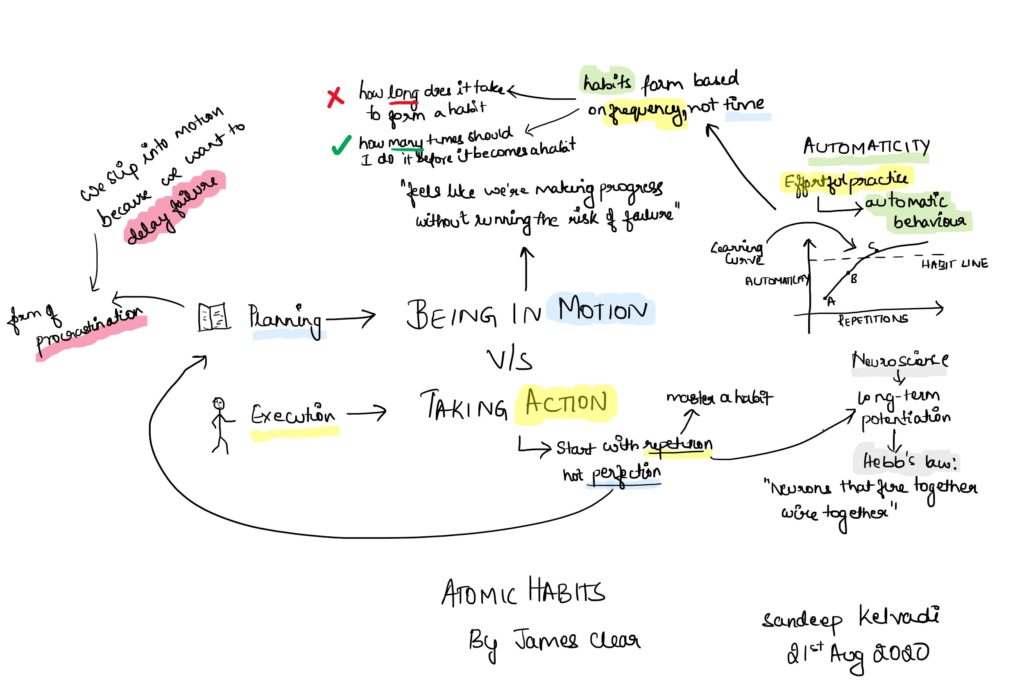 how long does it take
to form a habit
how many times should
I do it before it becomes a habit
habits form based
on frequency, not time
we slip into motion
because we want to
delay failure
"feels like we're making progress
without running the risk of failure"
AUTOMATICITY
Effortful practice
automatic
behaviour
Learning
Curve
AUTOMATICITY
A
B
C
HABIT LINE
REPETITIONS
form of
procrastination
Planning
BEING IN MOTION
V/S
Execution
TAKING ACTION
master a habit
Start with repetition
not perfection
Neuroscience
Long-term
potentiation
Hebb's law:
"Neurons that fire together
wire together"
ATOMIC HABITS
By James Clear
Sandeep Kelvadi
21st Aug 2020